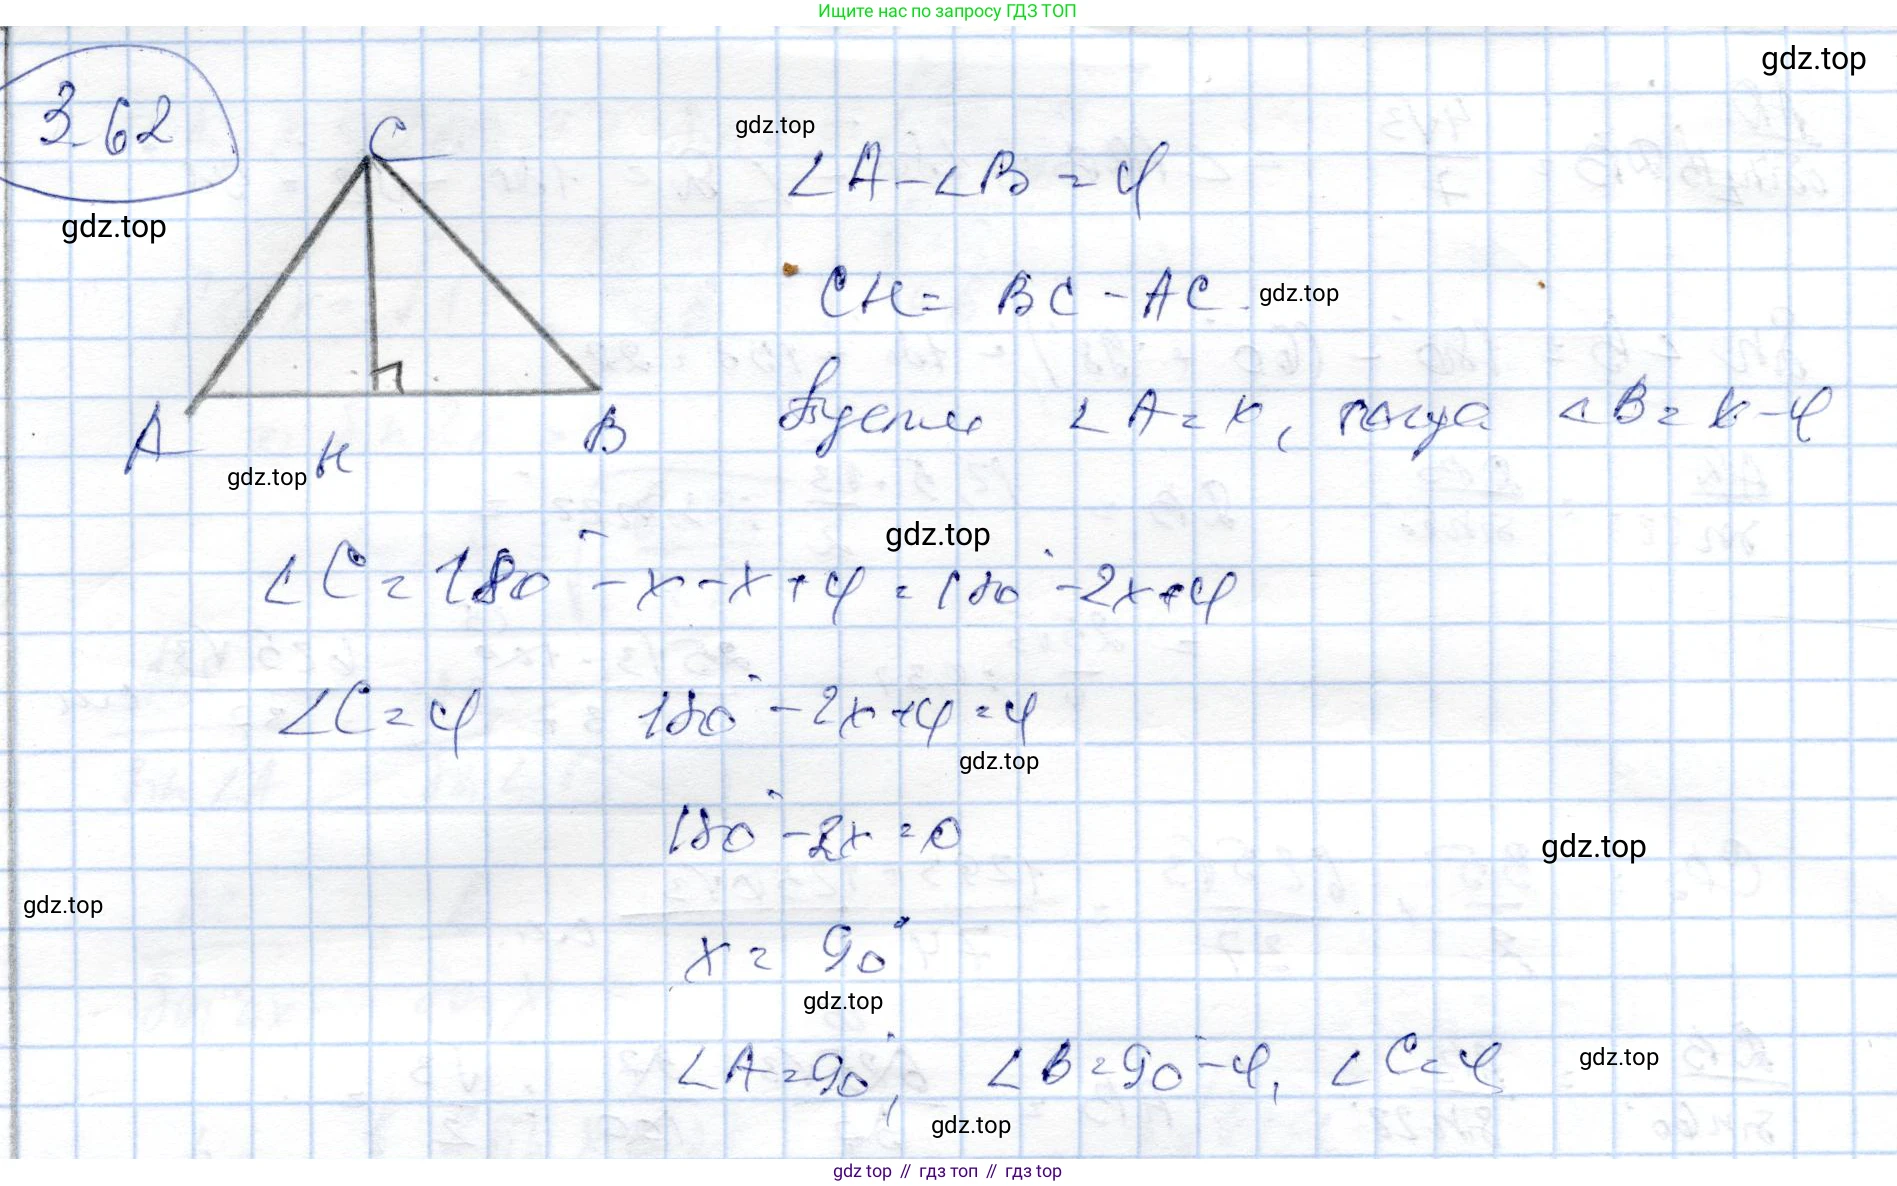 Ищите нас по запросу ГДЗ ТОП
gdz.top
3.62
C
gdz.top
∠A - ∠B = φ
gdz.top
CH = BC - AC.
gdz.top
Пусть ∠A = x, тогда ∠B = x - φ
A
H
B
gdz.top
gdz.top
∠C = 180° - x - x + φ = 180° - 2x + φ
∠C = φ 180° - 2x + φ = φ
gdz.top
180° - 2x = 0
gdz.top
gdz.top
x = 90°
gdz.top
∠A = 90°, ∠B = 90° - φ, ∠C = φ
gdz.top
gdz.top
gdz top // гдз топ // гдз top